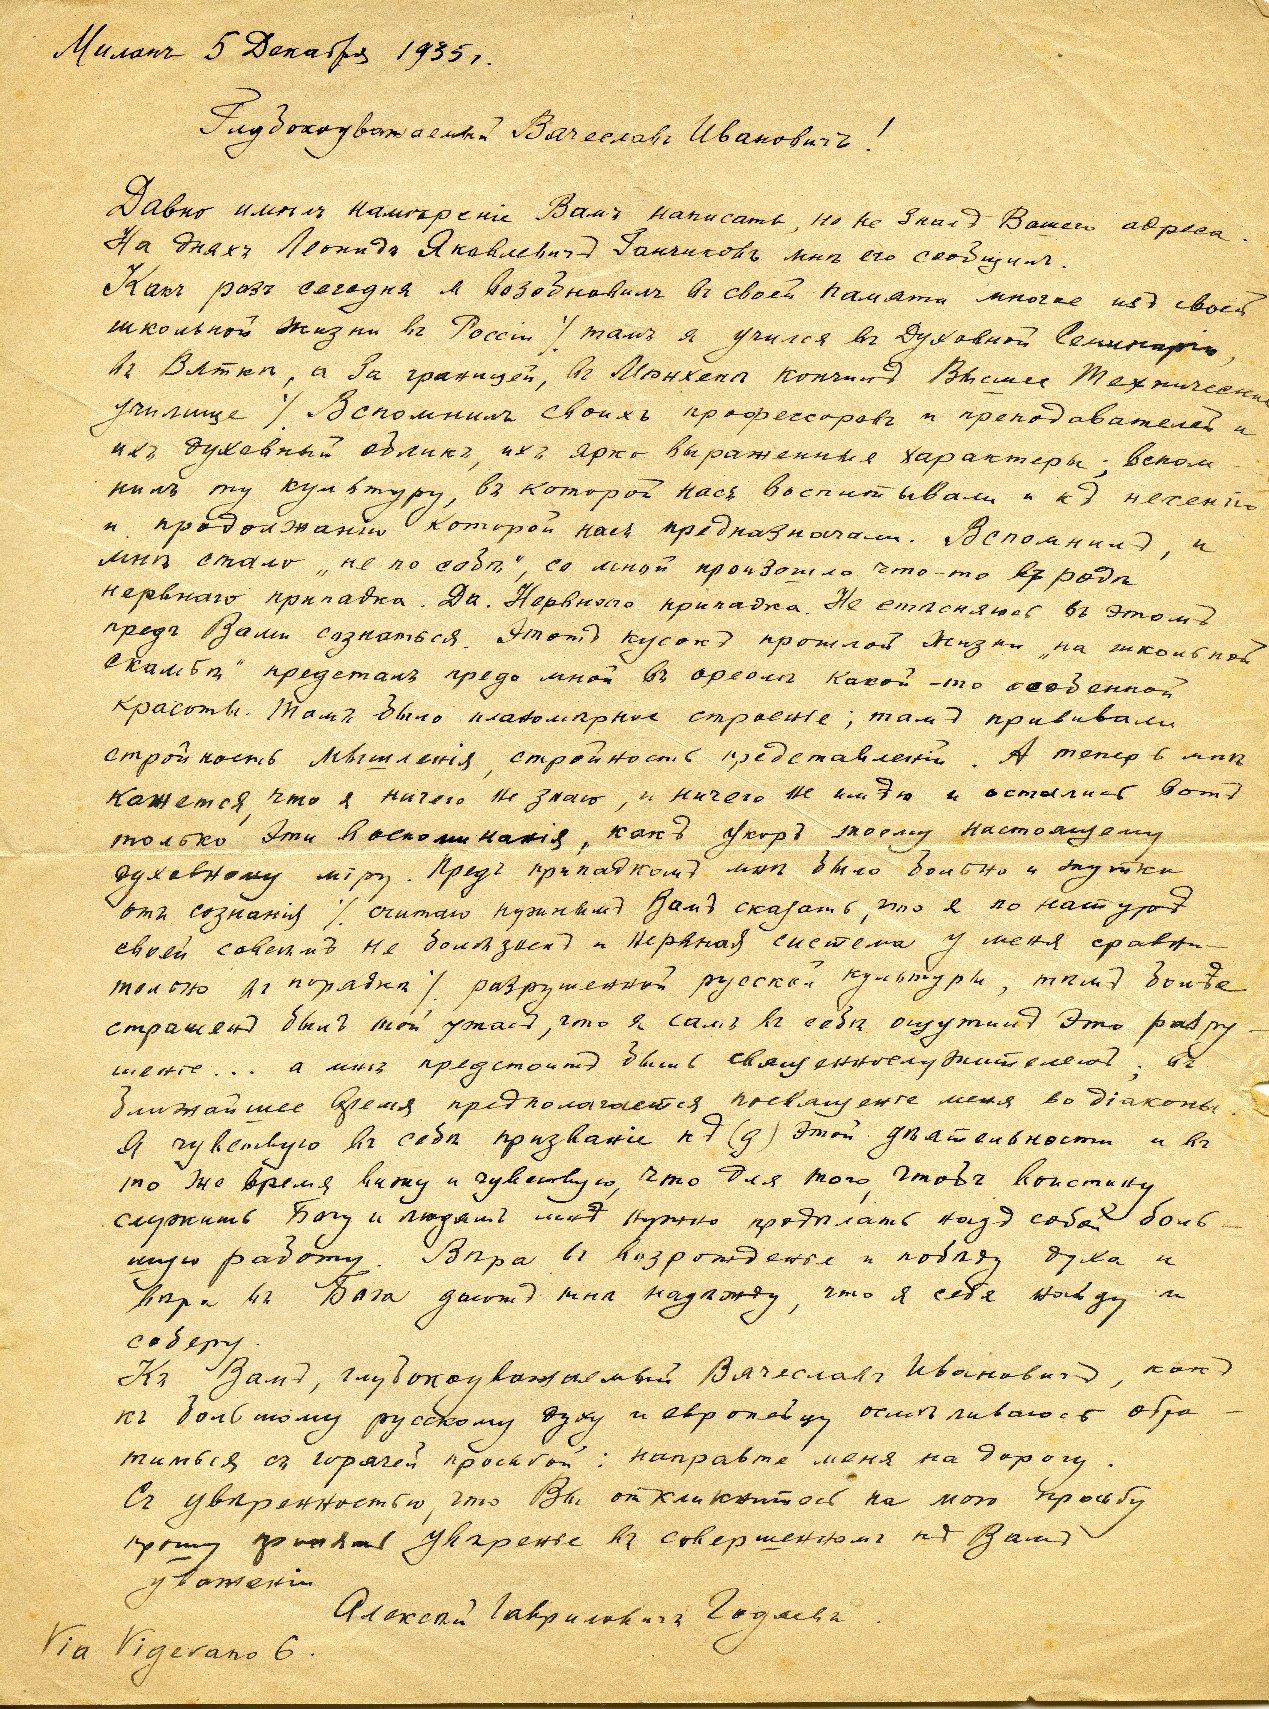 Миланъ 5 Декабря 1935 г.
Глубокоуважаемый Вячеславъ Ивановичъ!
Давно имѣлъ намѣреніе Вамъ написать, но не зналъ Вашего адреса.
На дняхъ Леонидъ Яковлевичъ Ганчиковъ мнѣ его сообщилъ.
Какъ разъ сегодня я возобновилъ въ своей памяти многое изъ своей
школьной жизни въ Россіи ·/. тамъ я учился въ Духовной Семинаріи,
въ Вяткѣ, а за границей, въ Мюнхенѣ кончилъ Высшее Техническое
училище ·/. Вспомнилъ своихъ профессоровъ и преподавателей и
ихъ духовный обликъ, ихъ ярко выраженные характеры; вспом-
нилъ ту культуру, въ которой насъ воспитывали и къ несенію
и продолжанію которой насъ предназначали. Вспомнилъ, и
мнѣ стало „не по себѣ“, со мной произошло что-то въ родѣ
нервнаго припадка. Да. Нервного припадка. Не стѣсняюсь въ этомъ
предъ Вами сознаться. Этотъ кусокъ прошлой жизни „на школьной
скамьѣ“ предсталъ предо мной въ ореолѣ какой-то особенной
красоты. Тамъ было планомѣрное строеніе; тамъ прививали
стройность мышленія, стройность представленій. А теперь мнѣ
кажется, что я ничего не знаю, и ничего не имѣю и остались вотъ
только эти воспоминанія, какъ укоръ моему настоящему
духовному міру. Предъ припадкомъ мнѣ было больно и жутко
отъ сознанія ·/. считаю нужнымъ Вамъ сказать, что я по натурѣ
своей совсѣмъ не болѣзненъ и нервная система у меня сравни-
тельно въ порядкѣ ·/. разрушенной русской культуры, тѣмъ болѣе
страшенъ былъ мой ужасъ, что я самъ въ себѣ ощутилъ это разру-
шеніе... а мнѣ предстоитъ быть священнослужителемъ; въ
ближайшее время предполагается посвященіе меня во діаконы.
Я чувствую въ себѣ призваніе къ (д) этой дѣятельности и въ
то же время вижу и чувствую, что для того, чтобъ воистину
служить Богу и людямъ мнѣ нужно продѣлать надъ собой боль-
шую работу. Вѣра въ возрожденіе и побѣду духа и
вѣра въ Бога даютъ мнѣ надежду, что я себя найду и
соберу.
Къ Вамъ, глубокоуважаемый Вячеславъ Ивановичъ, какъ
къ большому русскому духу и европейцу осмѣливаюсь обра-
титься съ горячей просьбой: направте меня на дорогу.
Съ увѣренностью, что Вы откликнитесь на мою просьбу
прошу принять увѣреніе въ совершенномъ къ Вамъ
уваженіи
Алексѣй Гавриловичъ Годяевъ.
Via Vigevano 6.